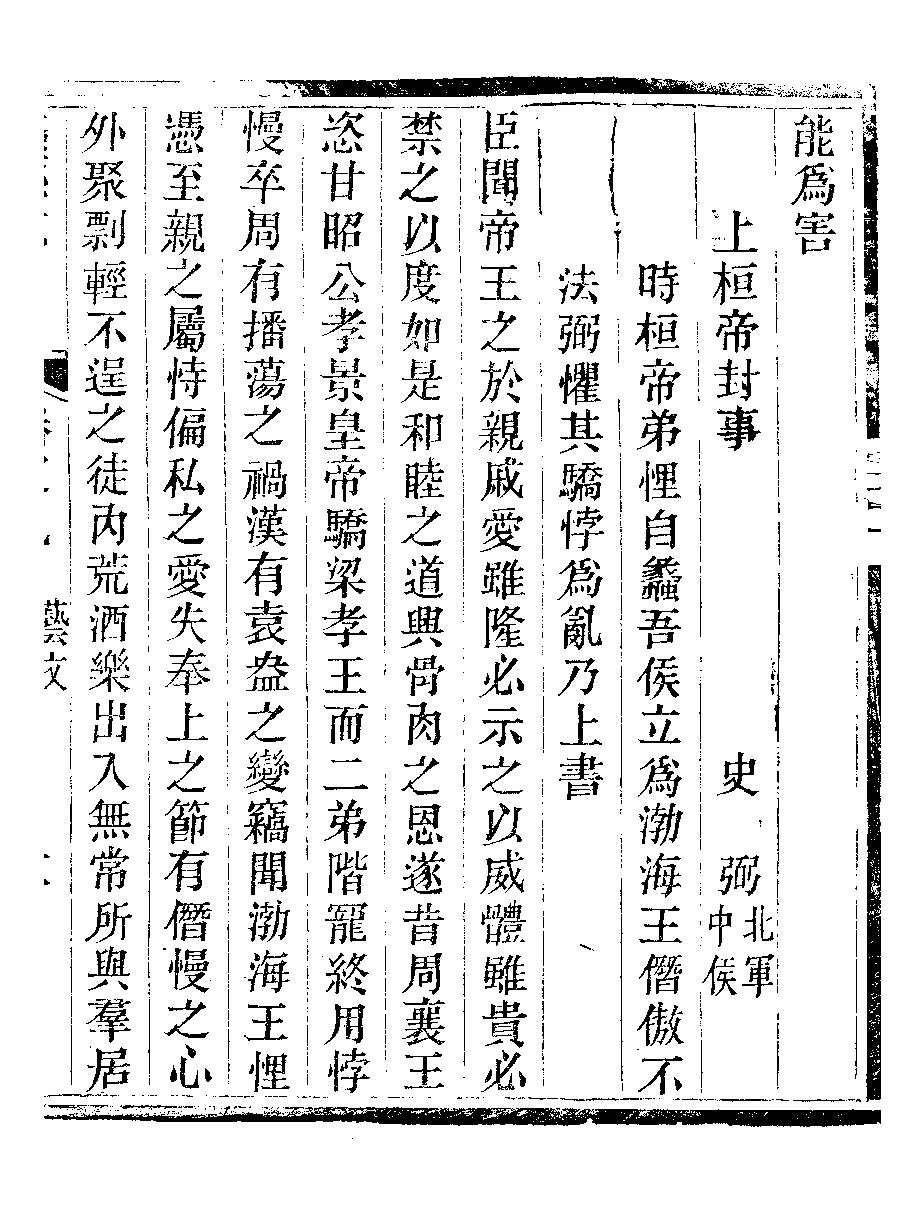 能爲害
上桓帝封事　史弼北軍中侯
時桓帝弟悝自蠡吾侯立爲渤海王僭傲不
法弼懼其驕悖爲亂乃上書
臣聞帝王之於親戚愛雖隆必示之以威體雖貴必
禁之以度如是和睦之道興骨肉之恩遂昔周襄王
恣甘昭公孝景皇帝驕梁孝王而二弟階寵終用悖
慢卒周有播蕩之禍漢有袁盎之變竊聞渤海王悝
憑至親之屬恃偏私之愛失奉上之節有僭慢之心
外聚剽輕不逞之徒內荒酒樂出入無常所與羣居
藝文